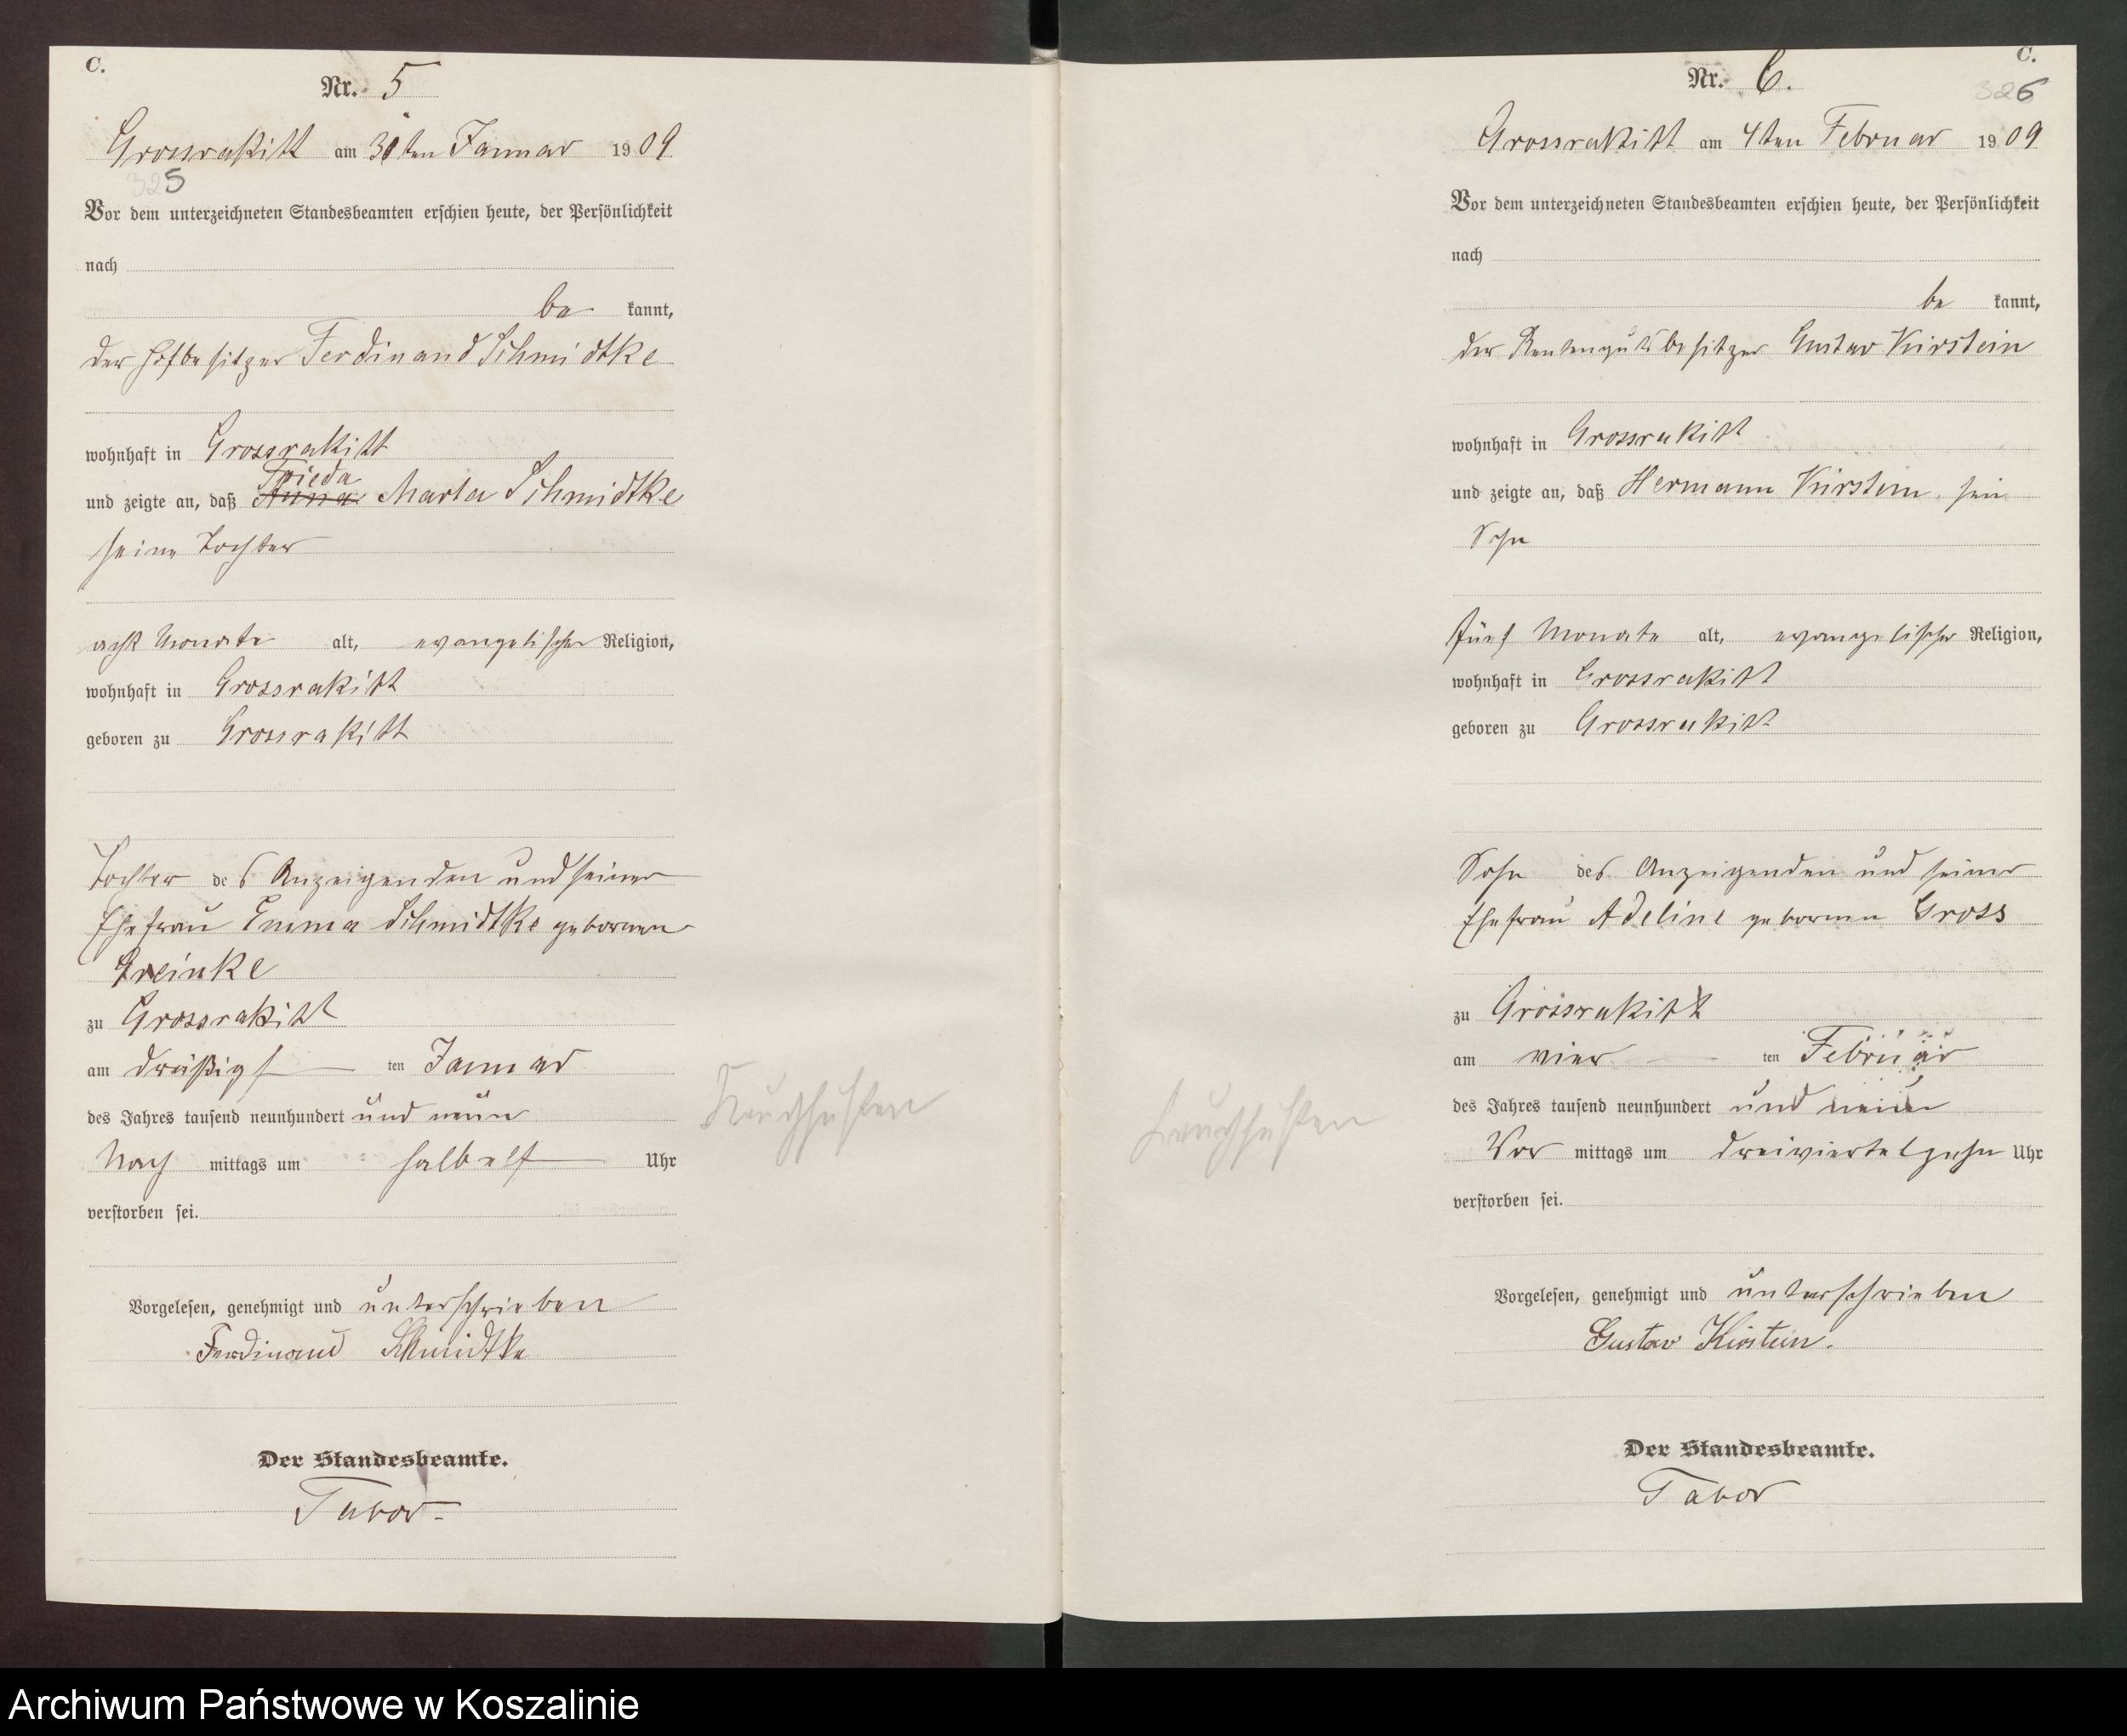 C.
Nr. 5
Grossrakitt am 30ten Januar 1909
325
Vor dem unterzeichneten Standesbeamten erschien heute, der Persönlichkeit
nach
be kannt,
der Hofbesitzer Ferdinand Schmidtke
wohnhaft in Grossrakitt
Frieda
und zeigte an, daß Anna Marta Schmidtke
seine Tochter
acht Monate alt, evangelischer Religion,
wohnhaft in Grossrakitt
geboren zu Grossrakitt
Tochter des Anzeigenden und seiner
Ehefrau Emma Schmidtke geborenen
Greinke
zu Grossrakitt
am dreißigs ten Januar
des Jahres tausend neunhundert und neun
Nach mittags um halb elf Uhr
verstorben sei.
Vorgelesen, genehmigt und unterschrieben
Ferdinand Schmidtke
Der Standesbeamte.
Tabor
Keuchhusten
C.
Nr. 6.
326
Grossrakitt am 4ten Februar 1909
Vor dem unterzeichneten Standesbeamten erschien heute, der Persönlichkeit
nach
be kannt,
der Rentengutsbesitzer Gustav Kirstein
wohnhaft in Grossrakitt
und zeigte an, daß Hermann Kirstein, sein
Sohn
fünf Monate alt, evangelischer Religion,
wohnhaft in Grossrakitt
geboren zu Grossrakitt
Sohn des Anzeigenden und seiner
Ehefrau Adeline geborenen Gross
zu Grossrakitt
am vier ten Februar
des Jahres tausend neunhundert und neun
Vor mittags um dreiviertelzehn Uhr
verstorben sei.
Vorgelesen, genehmigt und unterschrieben
Gustav Kirstein.
Der Standesbeamte.
Tabor
Keuchhusten
Archiwum Państwowe w Koszalinie